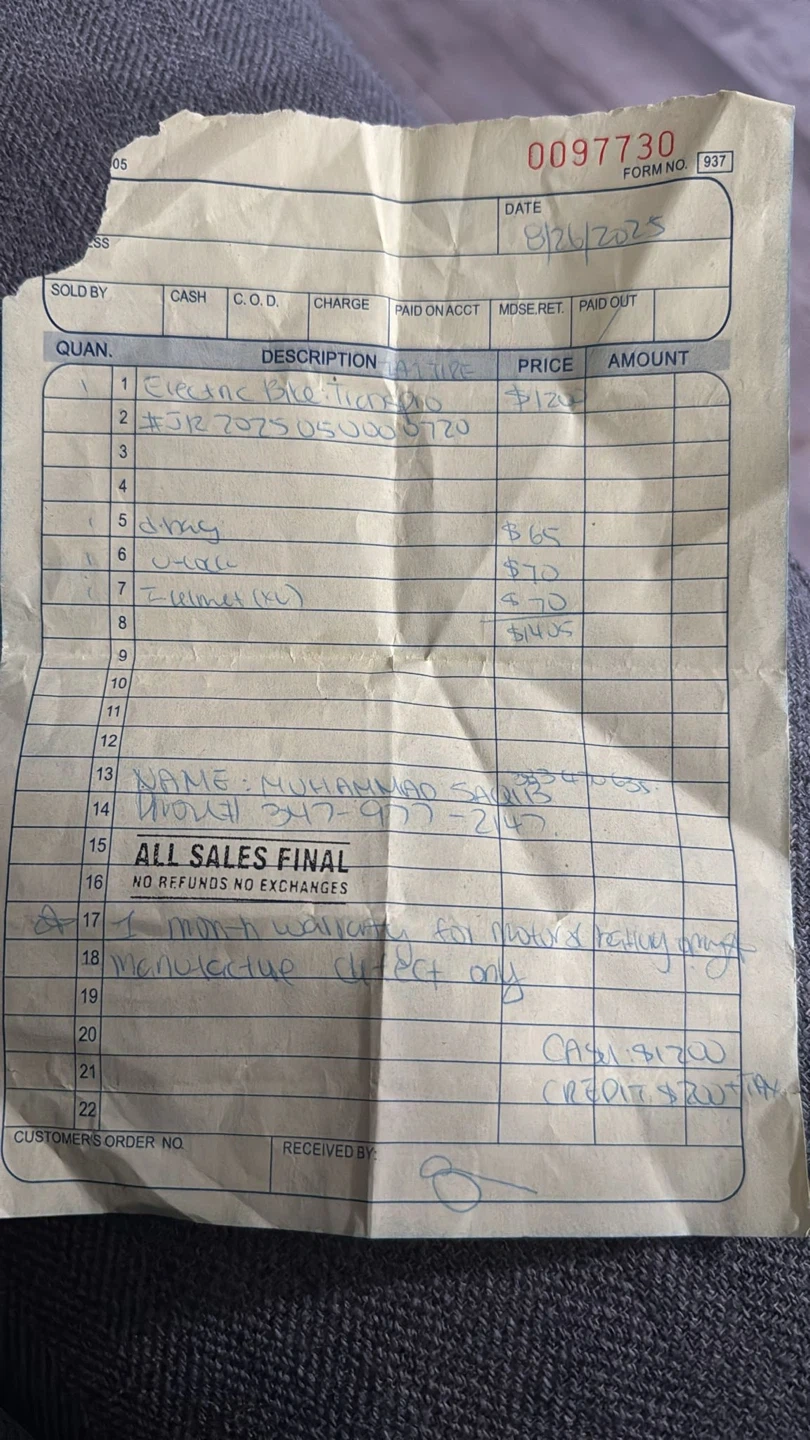 05
0097730
FORM NO. 937
DATE
8/26/2025
ESS
SOLD BY CASH C. O. D. CHARGE PAID ON ACCT MDSE. RET. PAID OUT
QUAN. DESCRIPTION PRICE AMOUNT
1 1 Electric Bike: $120
2 #JR20250500
3
4
1 5 $65
1 6 $70
1 7 Helmet (XL) $70
8 $1405
9
10
11
12
13 NAME: MUHAMMAD SAQIB
14 347-977-2147
15 ALL SALES FINAL
16 NO REFUNDS NO EXCHANGES
17 1 month warranty for motor &
18 manufactue defect only
19
20 CASH: $1200
21 CREDIT: $200+TAX
22
CUSTOMER'S ORDER NO. RECEIVED BY: